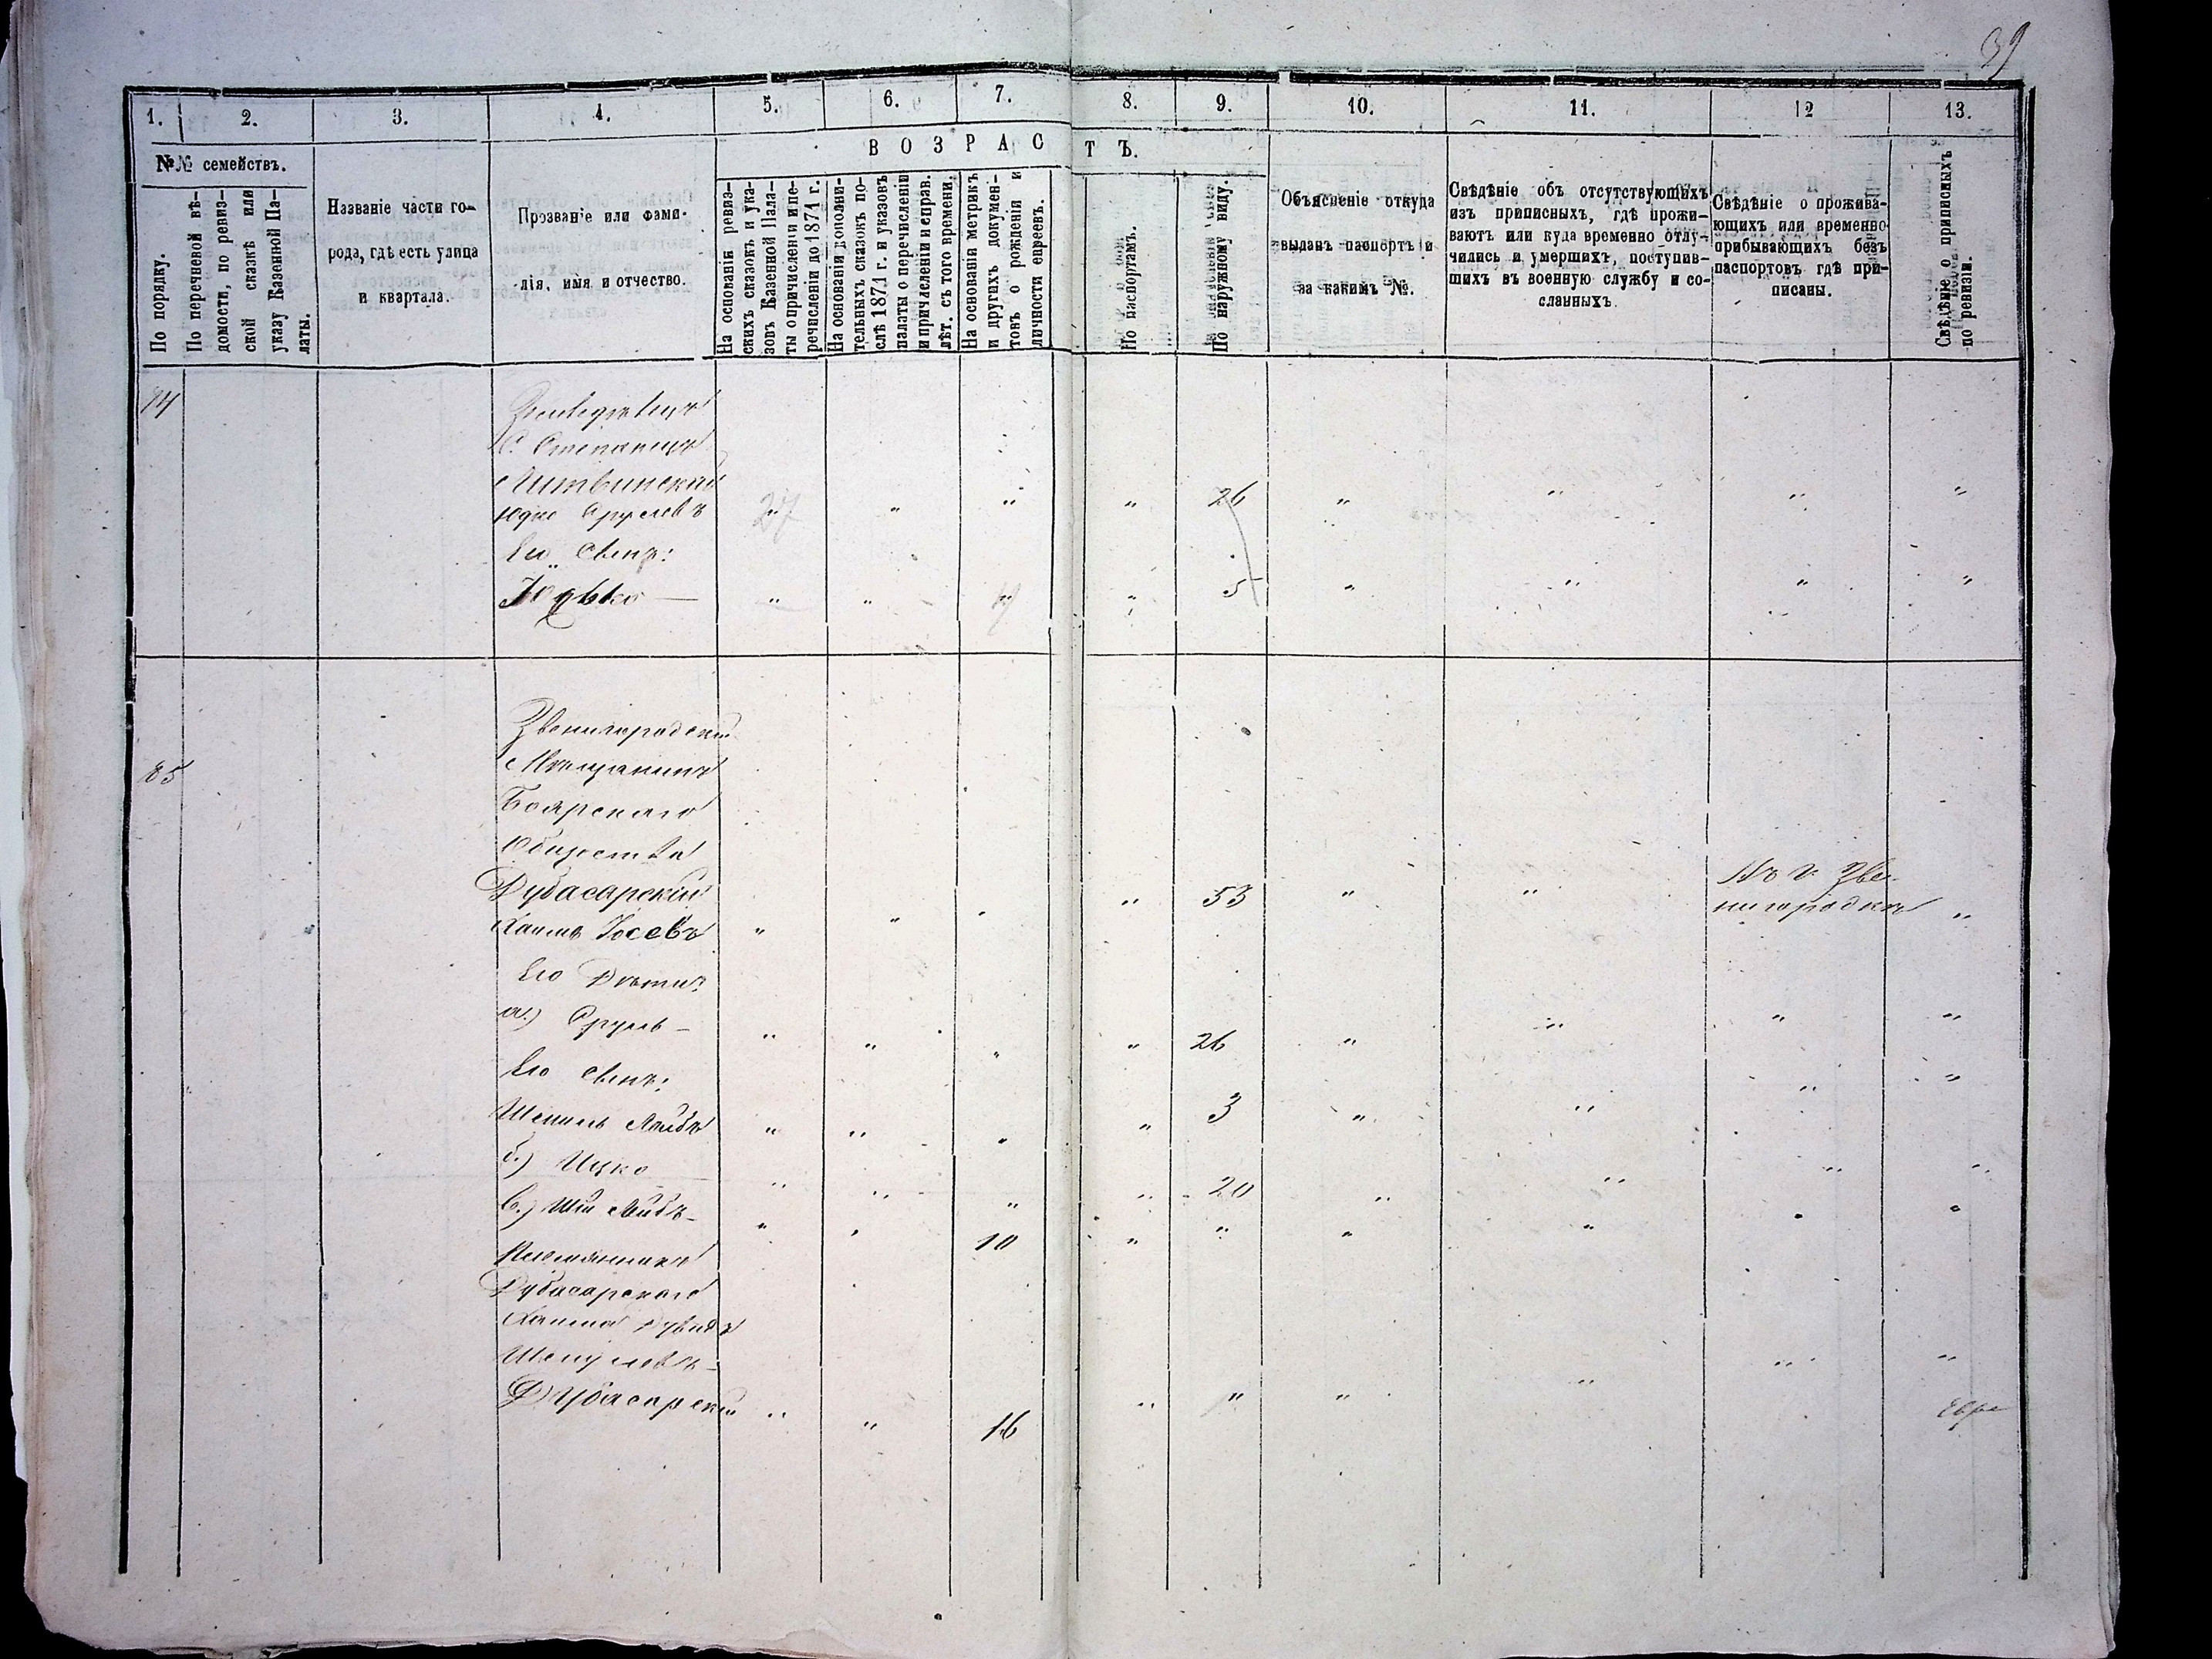 39
1. 2. 3. 4. 5. 6. 7. 8. 9. 10. 11. 12 13.
№№ семействъ.
В О З Р А С Т Ъ.
По порядку.
По перечневой вѣ-
домости, по ревиз-
ской сказкѣ или
указу Казенной Па-
латы.
Названіе части го-
рода, гдѣ есть улица
и квартала.
Прозваніе или фами-
лія, имя и отчество.
На основаніи ревиз-
скихъ сказокъ и ука-
зовъ Казенной Пала-
ты о причисленіи и пе-
речисленіи до 1874 г.
На основаніи дополни-
тельныхъ сказокъ по-
слѣ 1874 г. и указовъ
палаты о перечисленіи
и причисленіи и справ.
лѣт. съ того времени.
На основаніи метрикъ
и другихъ докумен-
товъ о рожденіи и
личности евреевъ.
По паспортамъ.
По наружному виду.
Объясненіе откуда
выданъ паспортъ и
за какимъ №.
Свѣдѣніе объ отсутствующихъ
изъ приписныхъ, гдѣ прожи-
ваютъ или куда временно отлу-
чились и умершихъ, поступив-
шихъ въ военную службу и со-
сланныхъ.
Свѣдѣніе о прожива-
ющихъ или временно
прибывающихъ безъ
паспортовъ гдѣ при-
писаны.
Свѣдѣніе о приписныхъ
по ревизіи.
84
Литвинскій
Юдко Срулевъ 27 " " " 26 " " " "
Его Сынъ:
" " " " 5 " " " "
85
Звенигородскій
Мѣщанинъ
Боярскаго
Общества
Дубасарскій
Хаимъ Іосевъ " " " " 53 " " Въ г. Зве-
нигородкѣ "
Его Дѣти:
а.) Сруль - " " " " 26 " " " "
Его сынъ:
Шмиль Лейбъ " " " " 3 " " " "
б.) Ицко " " " " 20 " " " "
в.) Шая Лейбъ - " " 10 " " " " " "
Племянникъ
Дубасарскаго
Хаима Дувидъ
Шмулевъ -
Дубасарскій " " 16 " " " " " "